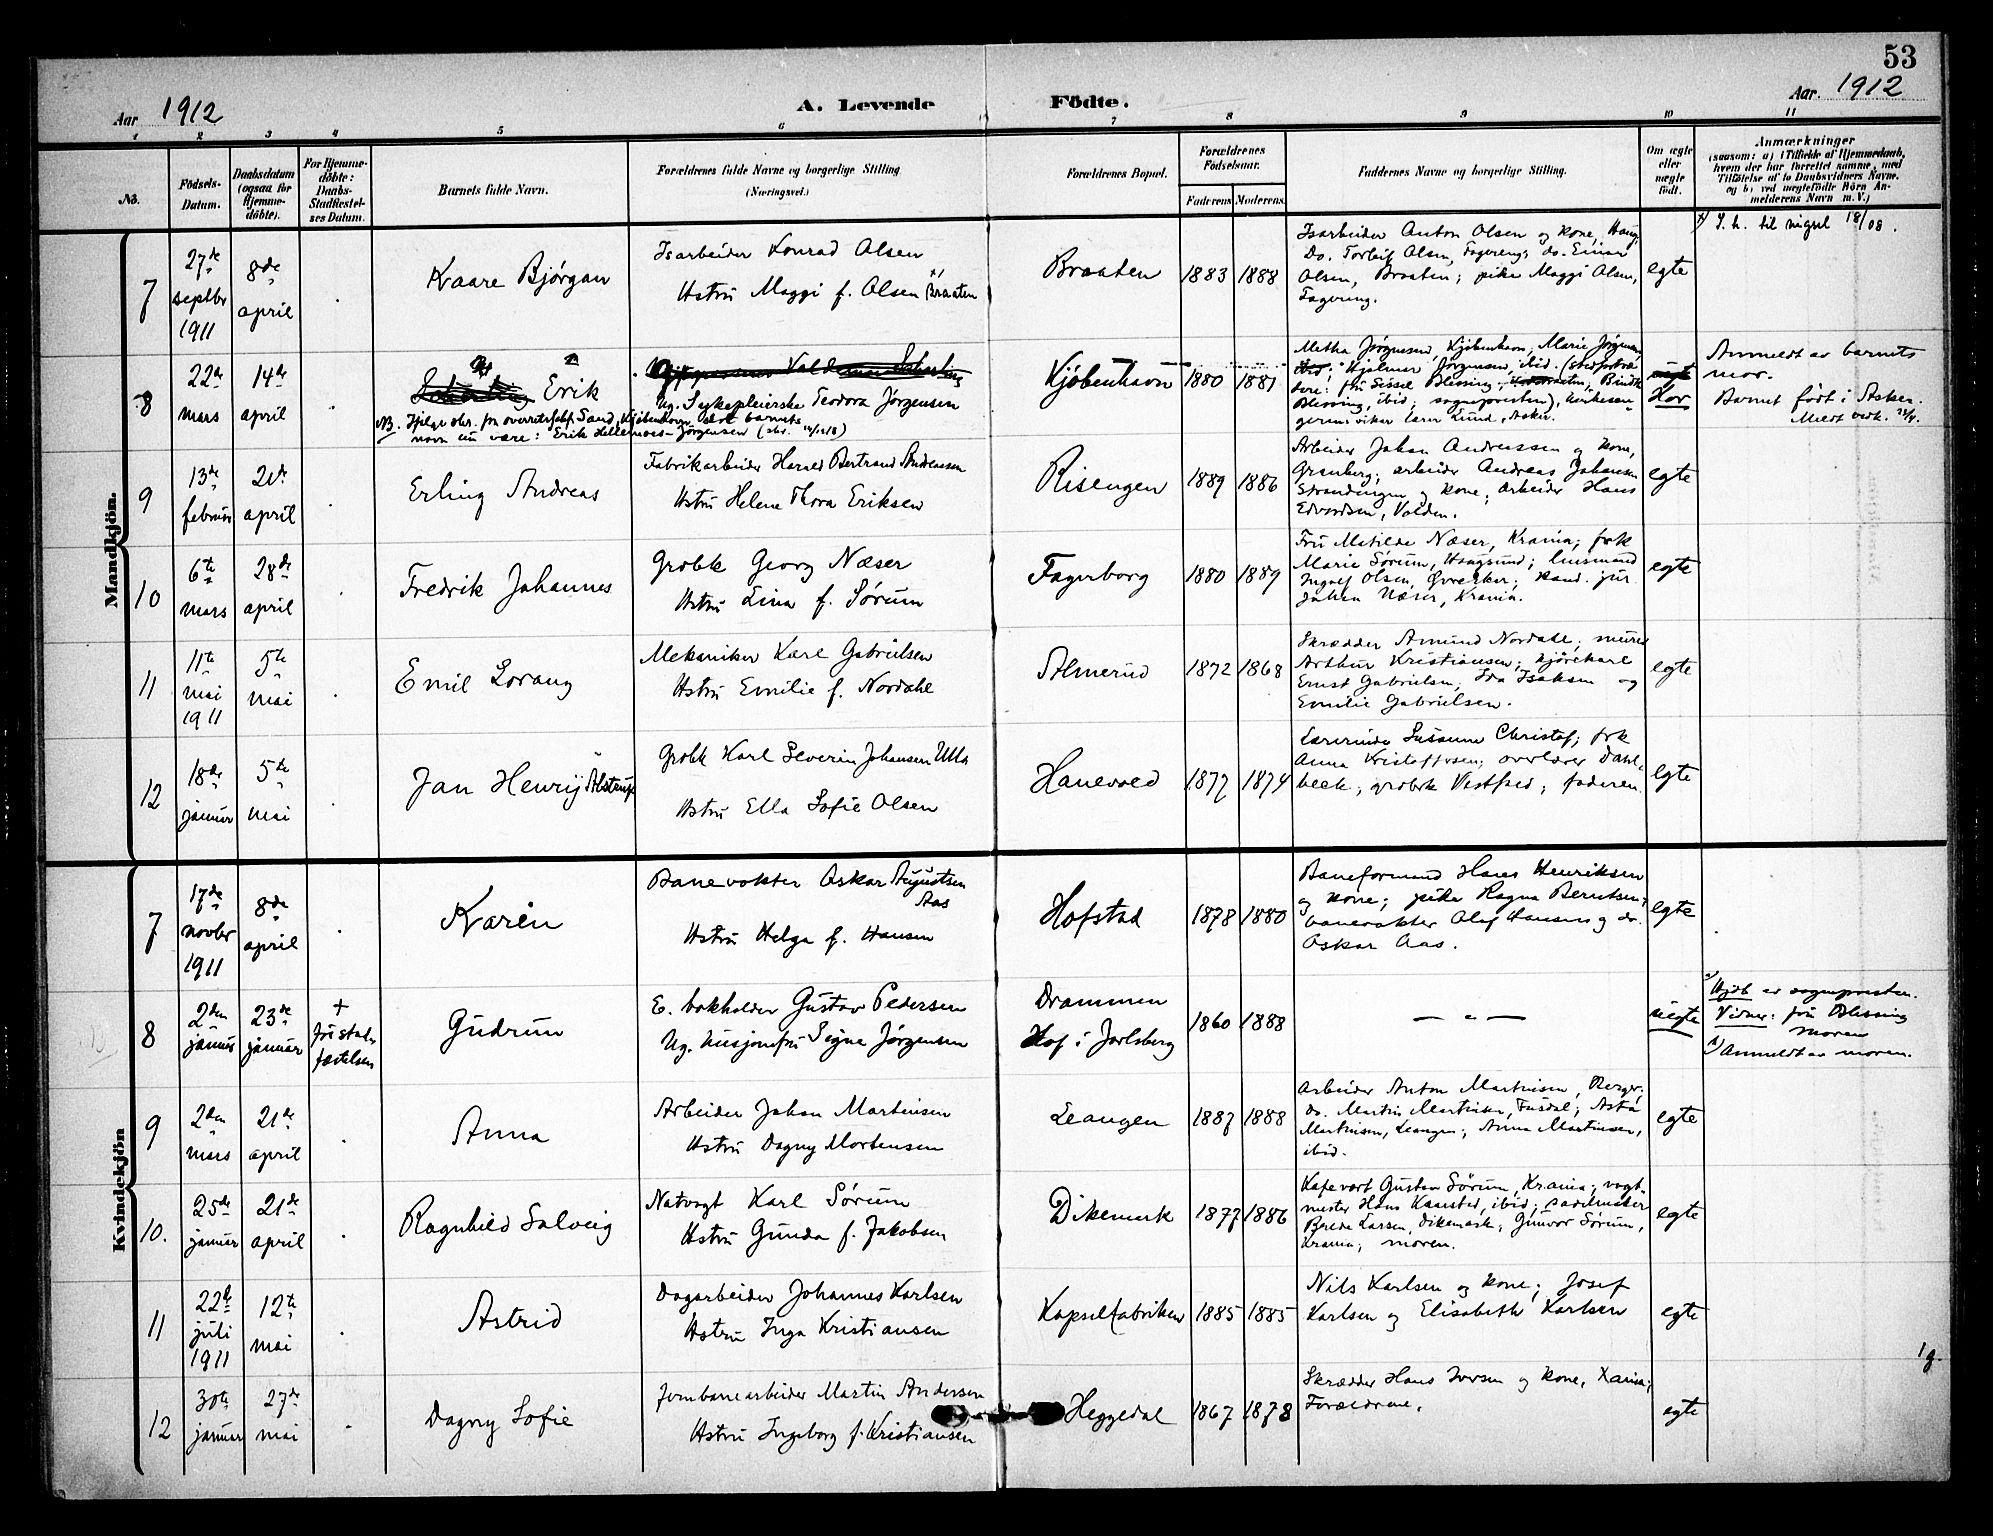 53
Aar 1912
A. Levende Födte.
Aar. 1912
1 2 3 4 5 6 7 8 9 10 11
No.
Födsels-
Datum.
Daabsdatum
(ogsaa for
Hjemme-
döbte).
For Hjemme-
döbte:
Daabs-
Stadfæstel-
ses Datum.
Barnets fulde Navn.
Forældrenes fulde Navne og borgerlige Stilling
(Næringsvei.)
Forældrenes Bopæl.
Forældrenes
Födselsaar.
Faderens Moderens
Faddernes Navne og borgerlige Stilling.
Om ægte
eller
uægte
födt.
Anmærkninger
(saasom: a) i Tilfælde af Hjemmedaab,
hvem der har forrettet samme, med
Tilföielse af to Daabsvidners Navne.
og b) ved uægtefödte Börn An-
melderens Navn m. V.)
Mandkjön.
7
27de
septbr
1911
8de
april
Kaare Bjørgan
Isarbeider Konrad Olsen
Hstru Maggi f. Olsen Braaten
Braaten
1883 1888
Isarbeider Anton Olsen og kone, Haug;
Do. Torleif Olsen, Fagereng; do. Einar
Olsen, Braaten; pike Maggi Olsen,
Fagereng.
egte
x) S. h. til vigsel 18/08.
8
22de
mars
14de
april
Erik
Ug. Sykepleierske Teodora Jørgensen
NB. Ifølge skr. fra overretssakf. Sand, Kjøbenhavn skal barnets
navn nu være: Erik Jørgensen
Kjøbenhavn
1880 1881
Metha Jørgensen, Kjøbenhavn; Marie Jørgensen
Hjalmar Jørgensen, ibid.
fru Sissel Blessing,
Blessing, ibid; sognepresten),
Lund, Asker.
Hor
Anmeldt av barnets
mor.
Barnet født i Asker.
9
13de
februar
21de
april
Erling Andreas
Fabrikarbeider Harald Bertrand Andreassen
Hstru Helene Thora Eriksen
Risengen
1889 1886
Arbeider Johan Andreassen og kone,
Grønberg; arbeider Andreas Johansen
Strandengen og kone; arbeider Hans
Edvardsen, Valden.
egte
10
6te
mars
28de
april
Fredrik Johannes
Grobk Georg Næser
Hstru Lina f. Sørum
Fagerborg
1880 1889
Fru Matilde Næser, Krania; frk
Marie Sørum, Haugsund; lensmand
Ingolf Olsen, Øvre Eker; kand. jur.
Johan Næser, Krania.
egte
11
11te
mai
1911
5te
mai
Emil Lorang
Mekaniker Karl Gabrielsen
Hstru Emilie f. Nordahl
Almerud
1872 1868
Skrædder Amund Nordahl; murer
Arthur Kristiansen; kjørekarl
Ernst Gabrielsen; Ida Isaksen og
Emilie Gabrielsen.
egte
12
18de
januar
5te
mai
Jan Henrij Alstrup
Grobk Karl Severin Johansen Ulla
Hstru Ella Sofie Olsen
Hanevold
1877 1874
Lærerinde Susanne Christof; frk
Anna Kristoffersen; overlærer Dahl,
grobrk Vestfred; faderen.
egte
Kvindekjön
7
17de
novbr
1911
8de
april
Karén
Banevokter Oskar Augustsen
Aas
Hstru Helga f. Hansen
Hofstad
1878 1880
Baneformand Hans Henriksen
og kone; pike Ragna Berntsen;
banevokter Olaf Hansen og do.
Oskar Aas.
egte
8
2den
januar
23de
januar
+
før stad-
fæstelsen
Gudrun
E. bokholder Gustav Pedersen
Ug. husjomfru Signe Jørgensen
Drammen
Hof i Jarlsberg
1860 1888
— " —
uegte
Hjdb av sognepresten.
Vidner: fru Blessing
moren
Anmeldt av moren.
9
2den
mars
21de
april
Anna
Arbeider Johan Martinsen
Hstru Dagny Mortensen
Leangen
1887 1888
Arbeider Anton Martinsen, Berger;
do. Martin Martinsen, Fusdal; Asta
Martinsen, Leangen; Anna Martinsen,
ibid.
egte
10.
25de
januar
21de
april
Ragnhild Solveig
Natvagt Karl Sørum
Hstru Gunda f. Jakobsen
Dikemark
1877 1886
Kafevert Gustav Sørum, Krania; vagt-
mester Hans Kaarsted, ibid; sadelmaker
Brede Larsen, Dikemark; Gunvor Sørum,
Krania; moren.
egte
11
22de
juli
1911
12te
mai
Astrid
Dagarbeider Johannes Karlsen
Hstru Inga Kristiansen
Kapselfabriken
1885 1885
Nils Karlsen og kone; Josef
Karlsen og Elisabeth Karlsen
egte
1g.
12
30te
januar
27de
mai
Dagny Sofie
Jernbanearbeider Martin Andersen
Hstru Ingeborg f. Kristiansen
Heggedal
1867 1878
Skrædder Hans Iversen og kone, Xania;
Forældrene.
egte